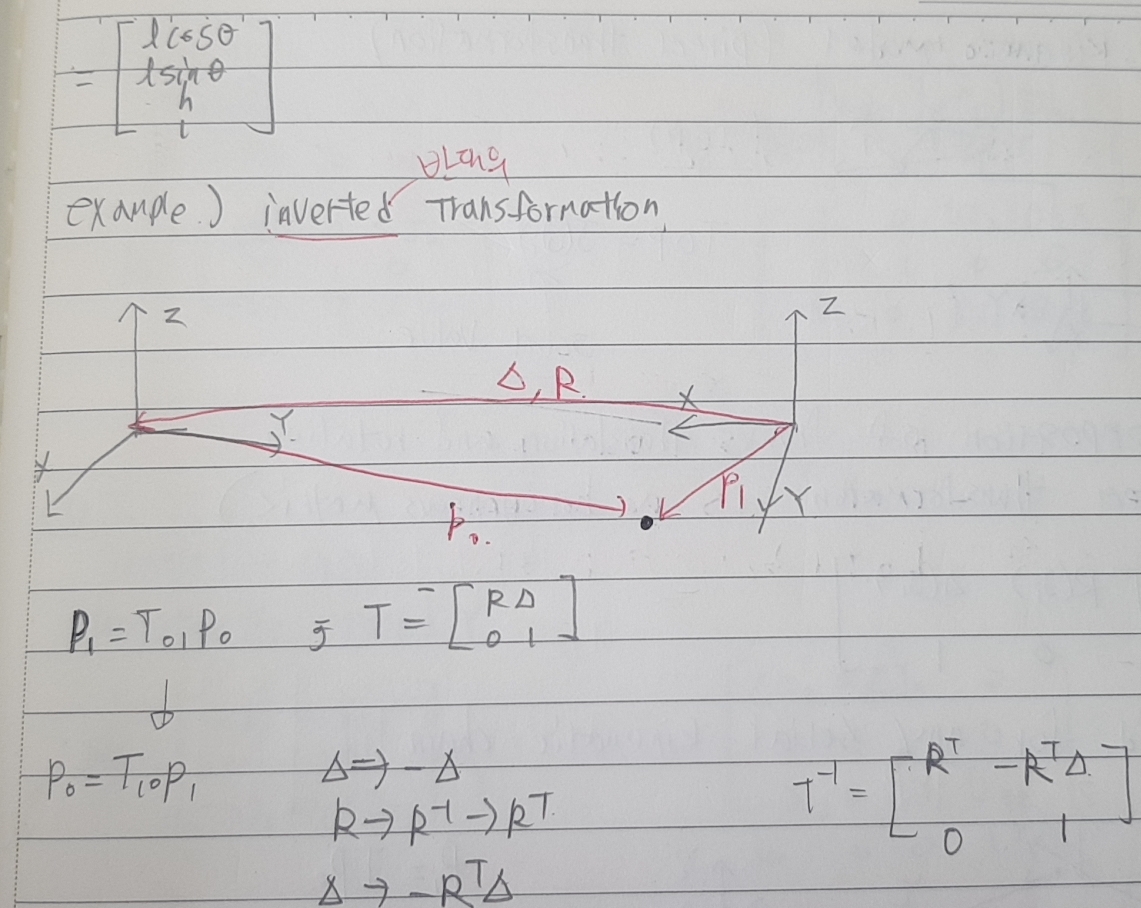 = [ lcosθ
lsinθ
h
1 ]
example.) inverted Transformation
Z
Z
Δ, R
X
Y
X
P₁
Y
p₀.
P₁ = T₀₁P₀ ; T = [ R Δ
0 1 ]
↓
p₀ = T₁₀p₁
Δ ⇒ -Δ
R → R⁻¹ → Rᵀ
Δ → -RᵀΔ
T⁻¹ = [ Rᵀ -RᵀΔ
0 1 ]